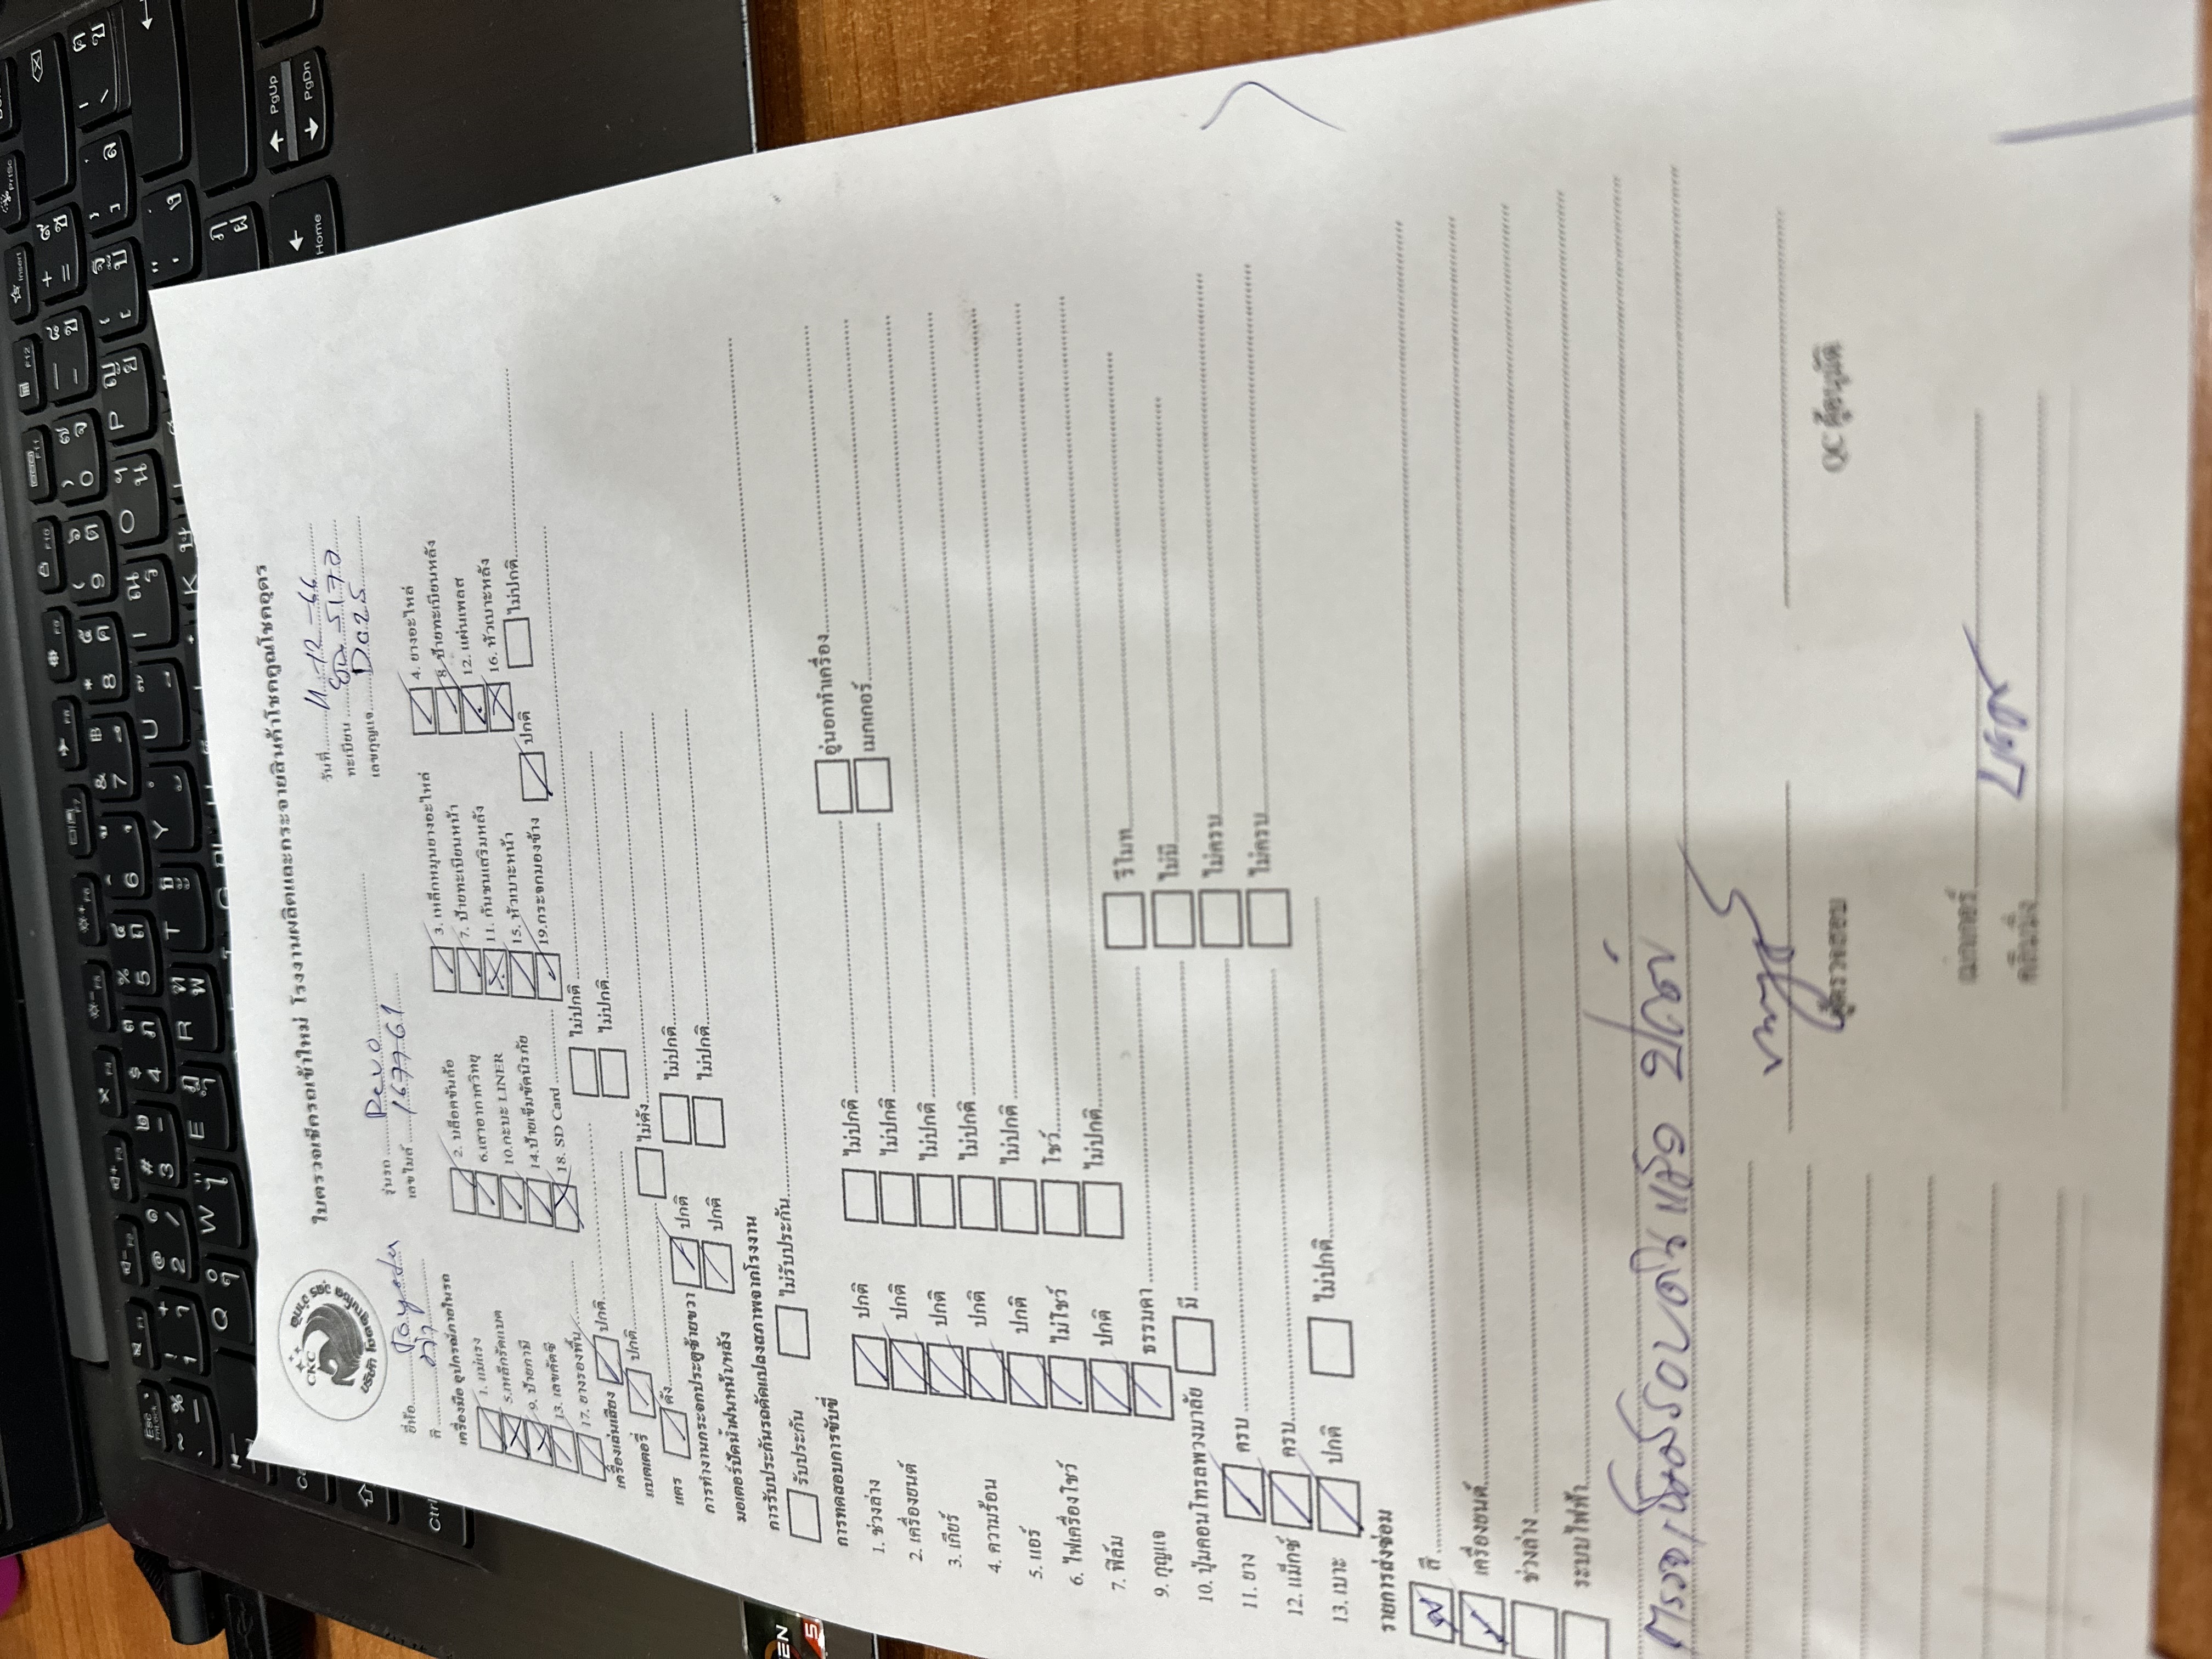 ใบตรวจเช็ครถเข้าใหม่ โรงงานผลิตและกระจายสินค้าโชคคูณโชคอุดร
CKC
บริษัท โชคคูณโชค
วันที่ 11-12-66
ยี่ห้อ Toyota รุ่นรถ Revo ทะเบียน 5170
สี ดำ เลขไมล์ 167761 เลขกุญแจ D025
เครื่องมือ อุปกรณ์ภายในรถ
1. แม่แรง 2. บล็อคขันล้อ 3. เหล็กหมุนยางอะไหล่ 4. ยางอะไหล่
5.เหล็กรัดแบต 6.เสาอากาศวิทยุ 7. ป้ายทะเบียนหน้า 8. ป้ายทะเบียนหลัง
9. ป้ายภาษี 10.กะบะ LINER 11. กันชนเสริมหลัง 12. แผ่นเพลส
13. เลขคัดซี 14.ป้ายเข็มขัดนิรภัย 15. หัวเบาะหน้า 16. หัวเบาะหลัง
17. ยางรองพื้น 18. SD Card 19.กระจกมองข้าง ปกติ ไม่ปกติ
เครื่องเล่นเสียง ปกติ ไม่ปกติ
แบตเตอรี่ ปกติ ไม่ปกติ
แตร ดัง ไม่ดัง
การทำงานกระจกประตูซ้ายขวา ปกติ ไม่ปกติ
มอเตอร์ปัดน้ำฝนหน้า/หลัง ปกติ ไม่ปกติ
การรับประกันรถดัดแปลงสภาพจากโรงงาน
รับประกัน ไม่รับประกัน
การทดสอบการขับขี่
1. ช่วงล่าง ปกติ ไม่ปกติ อู่นอกทำเครื่อง
2. เครื่องยนต์ ปกติ ไม่ปกติ เมกเกอร์
3. เกียร์ ปกติ ไม่ปกติ
4. ความร้อน ปกติ ไม่ปกติ
5. แอร์ ปกติ ไม่ปกติ
6. ไฟเครื่องโชว์ ไม่โชว์ โชว์
7. ฟิล์ม ปกติ ไม่ปกติ
9. กุญแจ ธรรมดา รีโมท
10. ปุ่มคอนโทรลพวงมาลัย มี ไม่มี
11. ยาง ครบ ไม่ครบ
12. แม็กซ์ ครบ ไม่ครบ
13. เบาะ ปกติ ไม่ปกติ
รายการส่งซ่อม
สี
เครื่องยนต์
ช่วงล่าง
ระบบไฟฟ้า
แล้ว ปกติ
ผู้ตรวจสอบ QC ผู้อนุมัติ